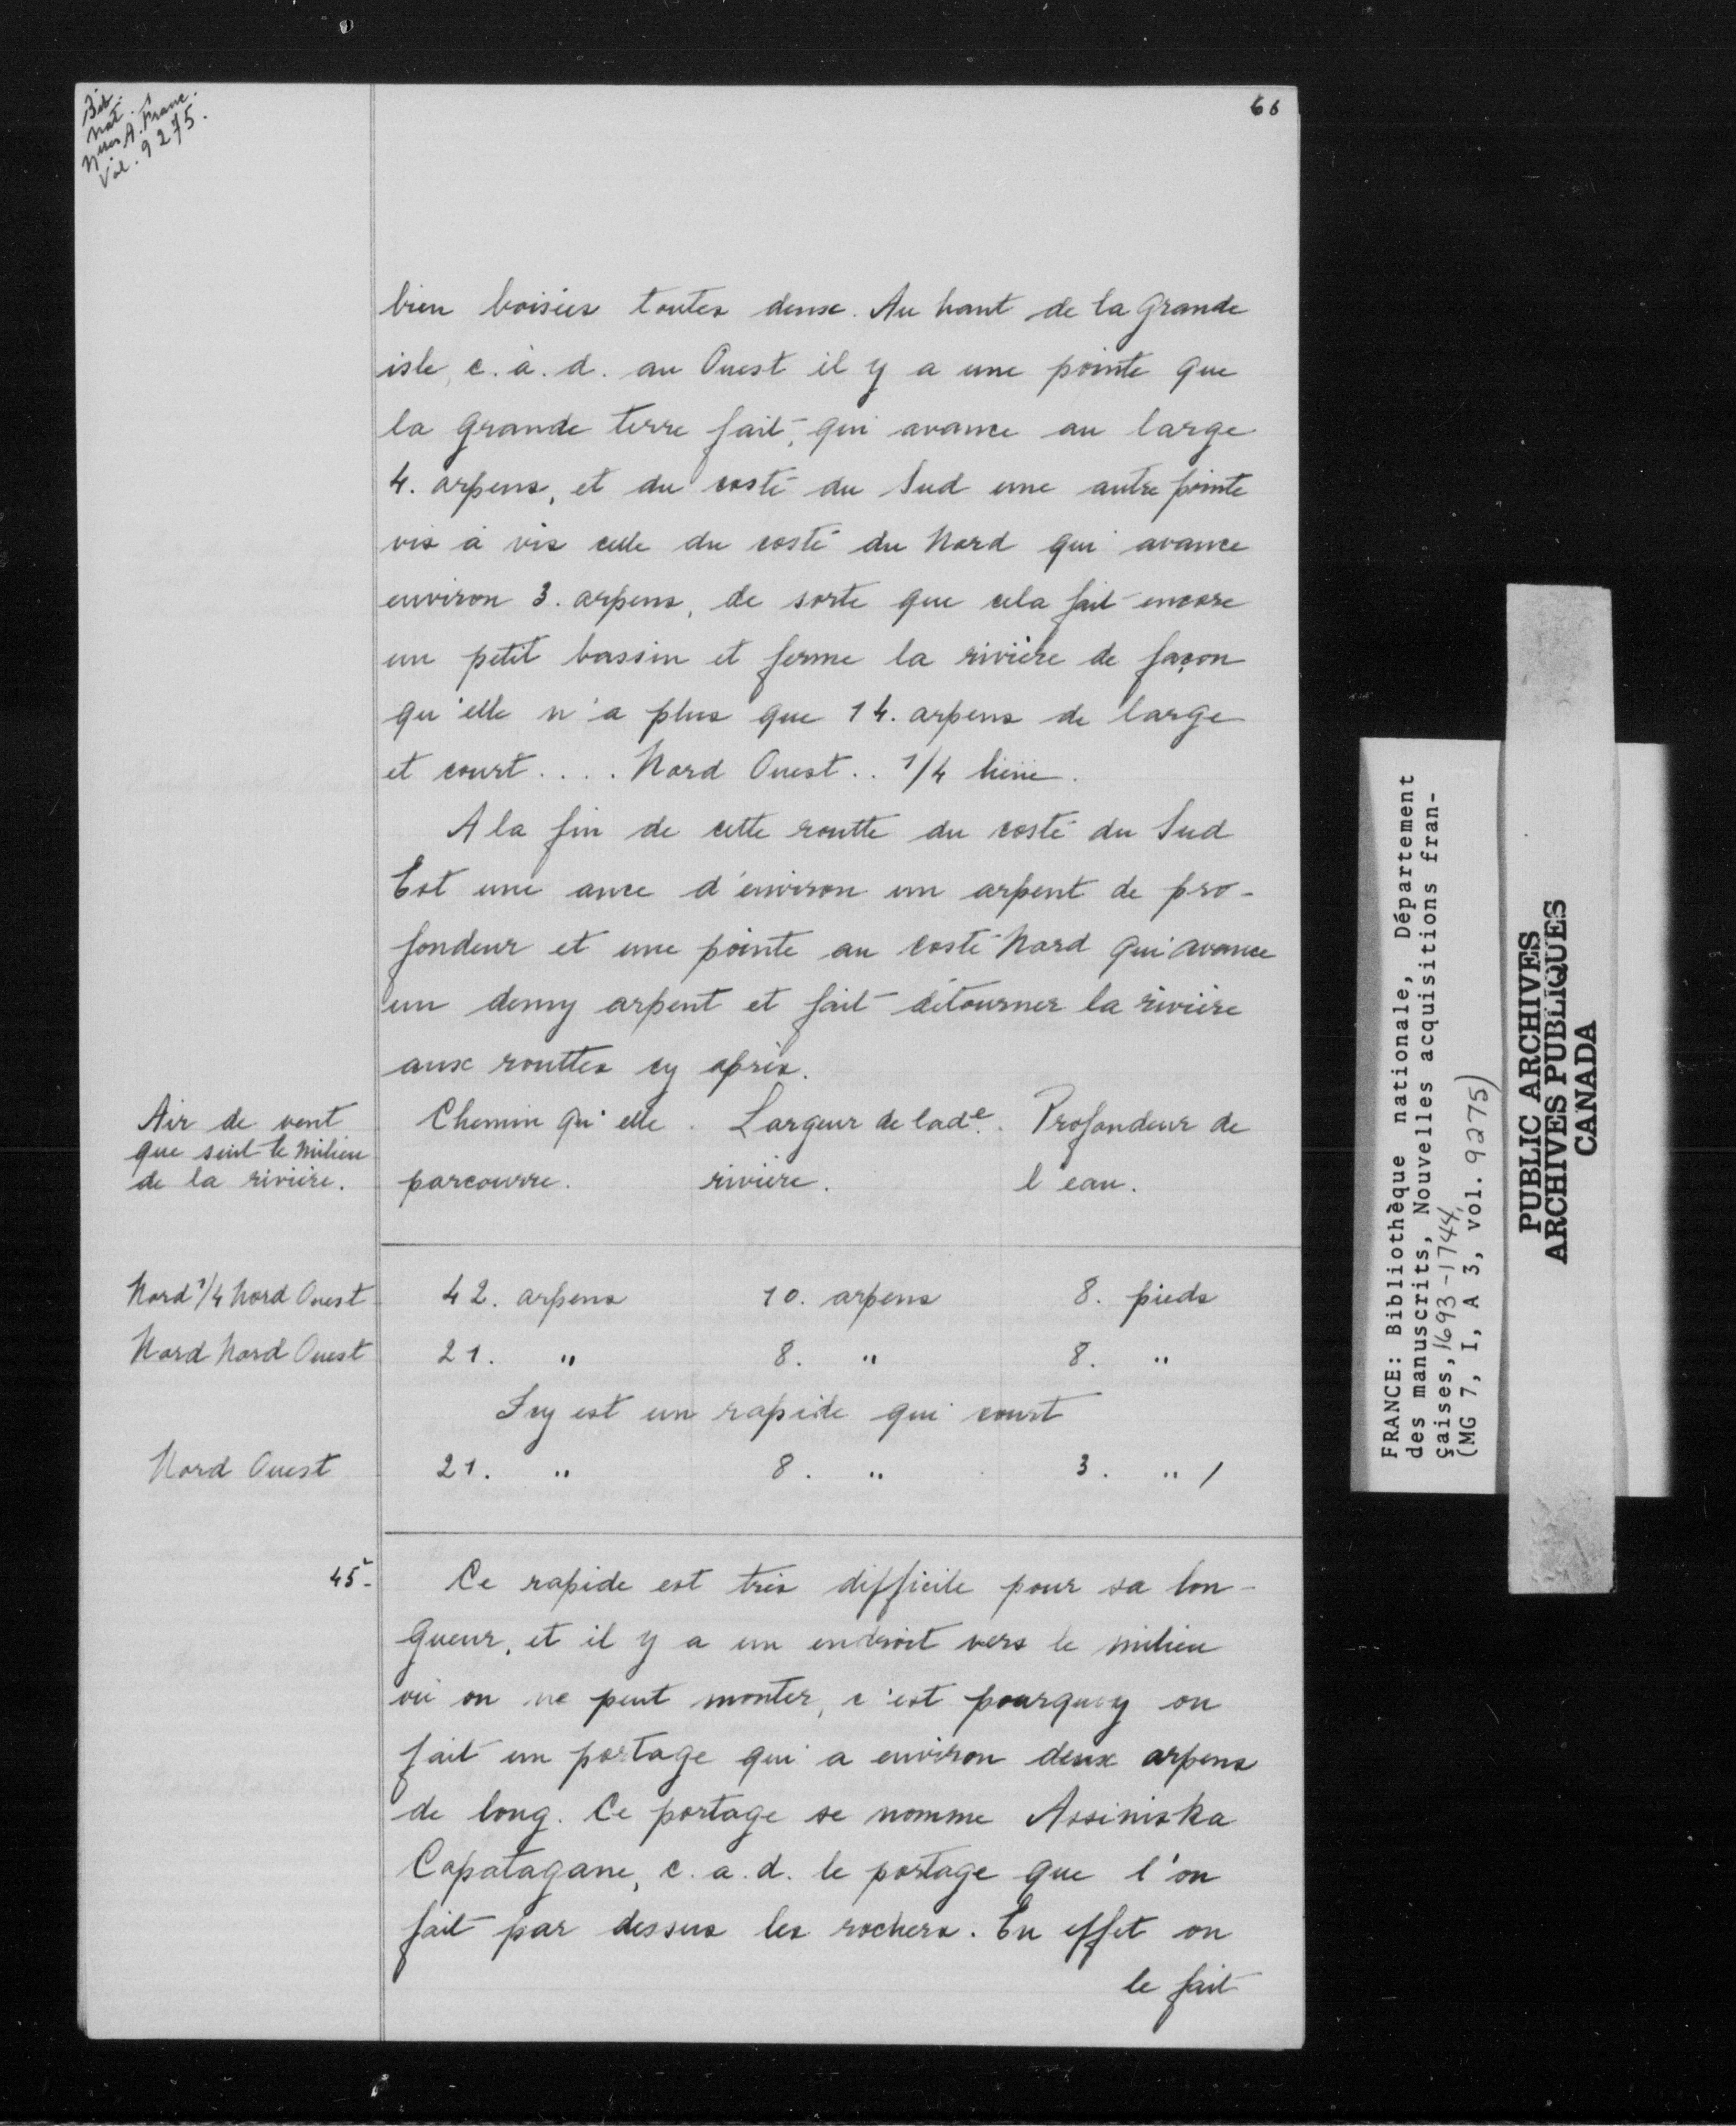 Bib.
Nat.
Nlles A. Franc.
Vol. 9275.
66
bien boisées toutes deux. Au haut de la grande
isle, c. à. d. au Ouest il y a une pointe que
la grande terre fait, qui avance au large
4. arpens, et du costé du Sud une autre pointe
vis à vis celle du costé du Nord qui avance
environ 3. arpens, de sorte que cela fait encore
un petit bassin et ferme la rivière de façon
qu'elle n'a plus que 14. arpens de large
et court.... Nord Ouest.. 1/4 lieüe.
A la fin de cette routte du costé du Sud
Est une ance d'environ un arpent de pro-
fondeur et une pointe au costé Nord qui avance
un demy arpent et fait détourner la rivière
aux routtes cy après.
Air de vent
que suit le milieu
de la rivière.
Chemin qu'elle
parcourre.
Largeur de lade.
rivière.
Profondeur de
l'eau.
Nord 1/4 Nord Ouest 42. arpens 10. arpens 8. pieds
Nord Nord Ouest 21. " 8. " 8. "
Icy est un rapide qui court
Nord Ouest 21. " 8. " 3. " /
45-
Ce rapide est très difficile pour sa lon-
gueur, et il y a un endroit vers le milieu
où on ne peut monter, c'est pourquoy on
fait un portage qui a environ deux arpens
de long. Ce portage se nomme Assiniska
Capatagane, c. a. d. le portage que l'on
fait par dessus les rochers. En effet on
le fait
FRANCE: Bibliothèque nationale, Département
des manuscrits, Nouvelles acquisitions fran-
çaises, 1693-1744,
(MG 7, I, A 3, vol. 9275)
PUBLIC ARCHIVES
ARCHIVES PUBLIQUES
CANADA